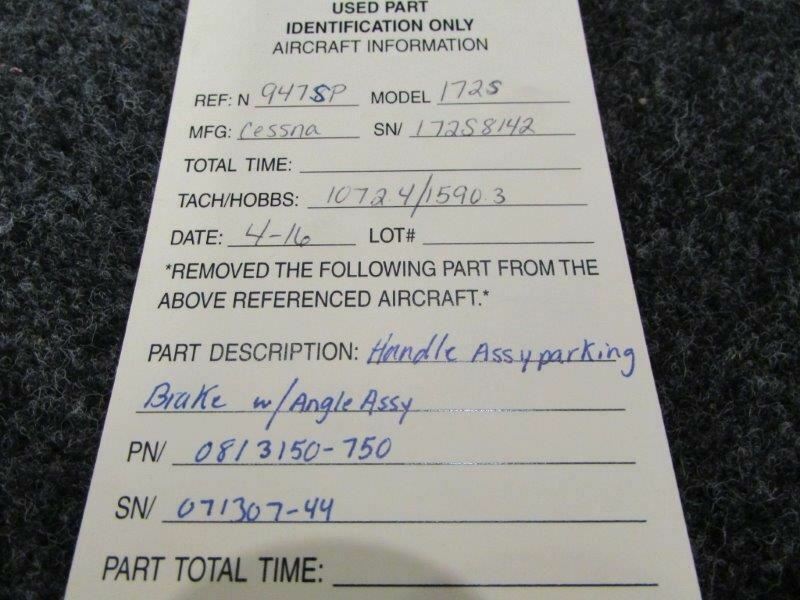 USED PART
IDENTIFICATION ONLY
AIRCRAFT INFORMATION
REF: N 947SP MODEL 172S
MFG: Cessna SN/ 172S8142
TOTAL TIME:
TACH/HOBBS: 1072.4/1590.3
DATE: 4-16 LOT#
*REMOVED THE FOLLOWING PART FROM THE
ABOVE REFERENCED AIRCRAFT.*
PART DESCRIPTION: Handle Assy parking
Brake w/ Angle Assy
PN/ 0813150-750
SN/ 071307-44
PART TOTAL TIME: